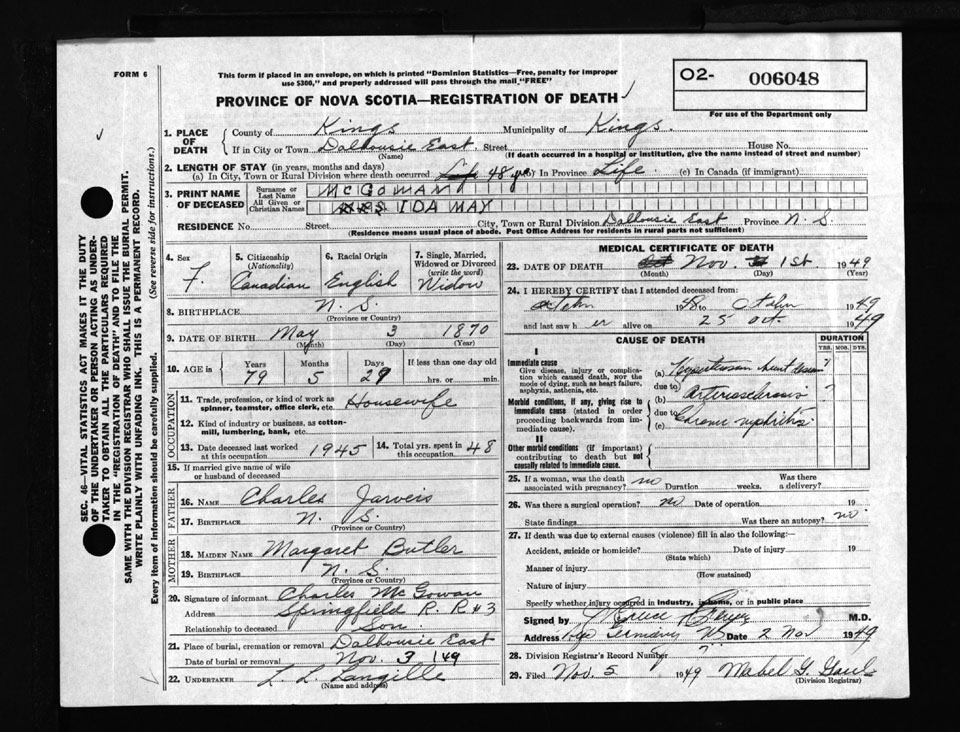 FORM 6
This form if placed in an envelope, on which is printed "Dominion Statistics—Free, penalty for improper
use $300," and properly addressed will pass through the mail "FREE"
O2- 006048
For use of the Department only
PROVINCE OF NOVA SCOTIA—REGISTRATION OF DEATH
SEC. 46—VITAL STATISTICS ACT MAKES IT THE DUTY
OF THE UNDERTAKER OR PERSON ACTING AS UNDER-
TAKER TO OBTAIN ALL THE PARTICULARS REQUIRED
IN THE "REGISTRATION OF DEATH" AND TO FILE THE
SAME WITH THE DIVISION REGISTRAR WHO SHALL ISSUE THE BURIAL PERMIT.
WRITE PLAINLY WITH UNFADING INK. THIS IS A PERMANENT RECORD.
Every item of information should be carefully supplied. (See reverse side for instructions.)
1. PLACE OF DEATH
County of Kings Municipality of Kings.
If in City or Town Dalhousie East. Street House No.
(Name) (If death occurred in a hospital or institution, give the name instead of street and number)
2. LENGTH OF STAY (in years, months and days)
(a) In City, Town or Rural Division where death occurred 48 yrs (b) In Province Life. (c) In Canada (if immigrant)
3. PRINT NAME OF DECEASED
Surname or Last Name MCGOWAN
All Given or Christian Names MRS IDA MAY
RESIDENCE No. Street City, Town or Rural Division Dalhousie East Province N. S.
(Residence means usual place of abode. Post Office Address for residents in rural parts not sufficient)
4. Sex F.
5. Citizenship (Nationality) Canadian
6. Racial Origin English
7. Single, Married, Widowed or Divorced (write the word) Widow
8. BIRTHPLACE N. S.
(Province or Country)
9. DATE OF BIRTH May 3 1870
(Month) (Day) (Year)
10. AGE in Years 79 Months 5 Days 29 If less than one day old hrs. or min.
OCCUPATION
11. Trade, profession, or kind of work as
spinner, teamster, office clerk, etc. Housewife
12. Kind of industry or business, as cotton-
mill, lumbering, bank, etc.
13. Date deceased last worked at this occupation 1945
14. Total yrs. spent in this occupation 48
15. If married give name of wife
or husband of deceased
FATHER
16. NAME Charles Jarveis
17. BIRTHPLACE N. S.
(Province or Country)
MOTHER
18. MAIDEN NAME Margaret Butler
19. BIRTHPLACE N. S.
(Province or Country)
20. Signature of informant Charles McGowan
Address Springfield R. R #3
Relationship to deceased Son
21. Place of burial, cremation or removal Dalhousie East
Date of burial or removal Nov. 3 149
22. UNDERTAKER L. L. Langille
(Name and address)
MEDICAL CERTIFICATE OF DEATH
23. DATE OF DEATH Nov. 1st 1949
(Month) (Day) (Year)
24. I HEREBY CERTIFY that I attended deceased from:
1949
and last saw h er alive on 25 Oct. 1949
CAUSE OF DEATH
DURATION
YRS. MOS. DYS.
I
Immediate cause
Give disease, injury or complica-
tion which caused death, nor the
mode of dying, such as heart failure,
asphyxia, asthenia, etc.
(a) ?
Morbid conditions, if any, giving rise to
immediate cause (stated in order
proceeding backwards from im-
mediate cause).
due to
(b) Arteriosclerosis ?
due to
(c) Chronic nephritis
II
Other morbid conditions (if important)
contributing to death but not
causally related to immediate cause.
25. If a woman, was the death
associated with pregnancy? no Duration weeks. Was there
a delivery?
26. Was there a surgical operation? no Date of operation 19
State findings Was there an autopsy? no
27. If death was due to external causes (violence) fill in also the following:—
Accident, suicide or homicide? Date of injury 19
(State which)
Manner of injury
(How sustained)
Nature of injury
Specify whether injury occurred in industry, in home, or in public place
Signed by M.D.
Address NS Date 2 Nov 1949
28. Division Registrar's Record Number
29. Filed Nov. 5 1949 Mabel G. Gaul
(Division Registrar)